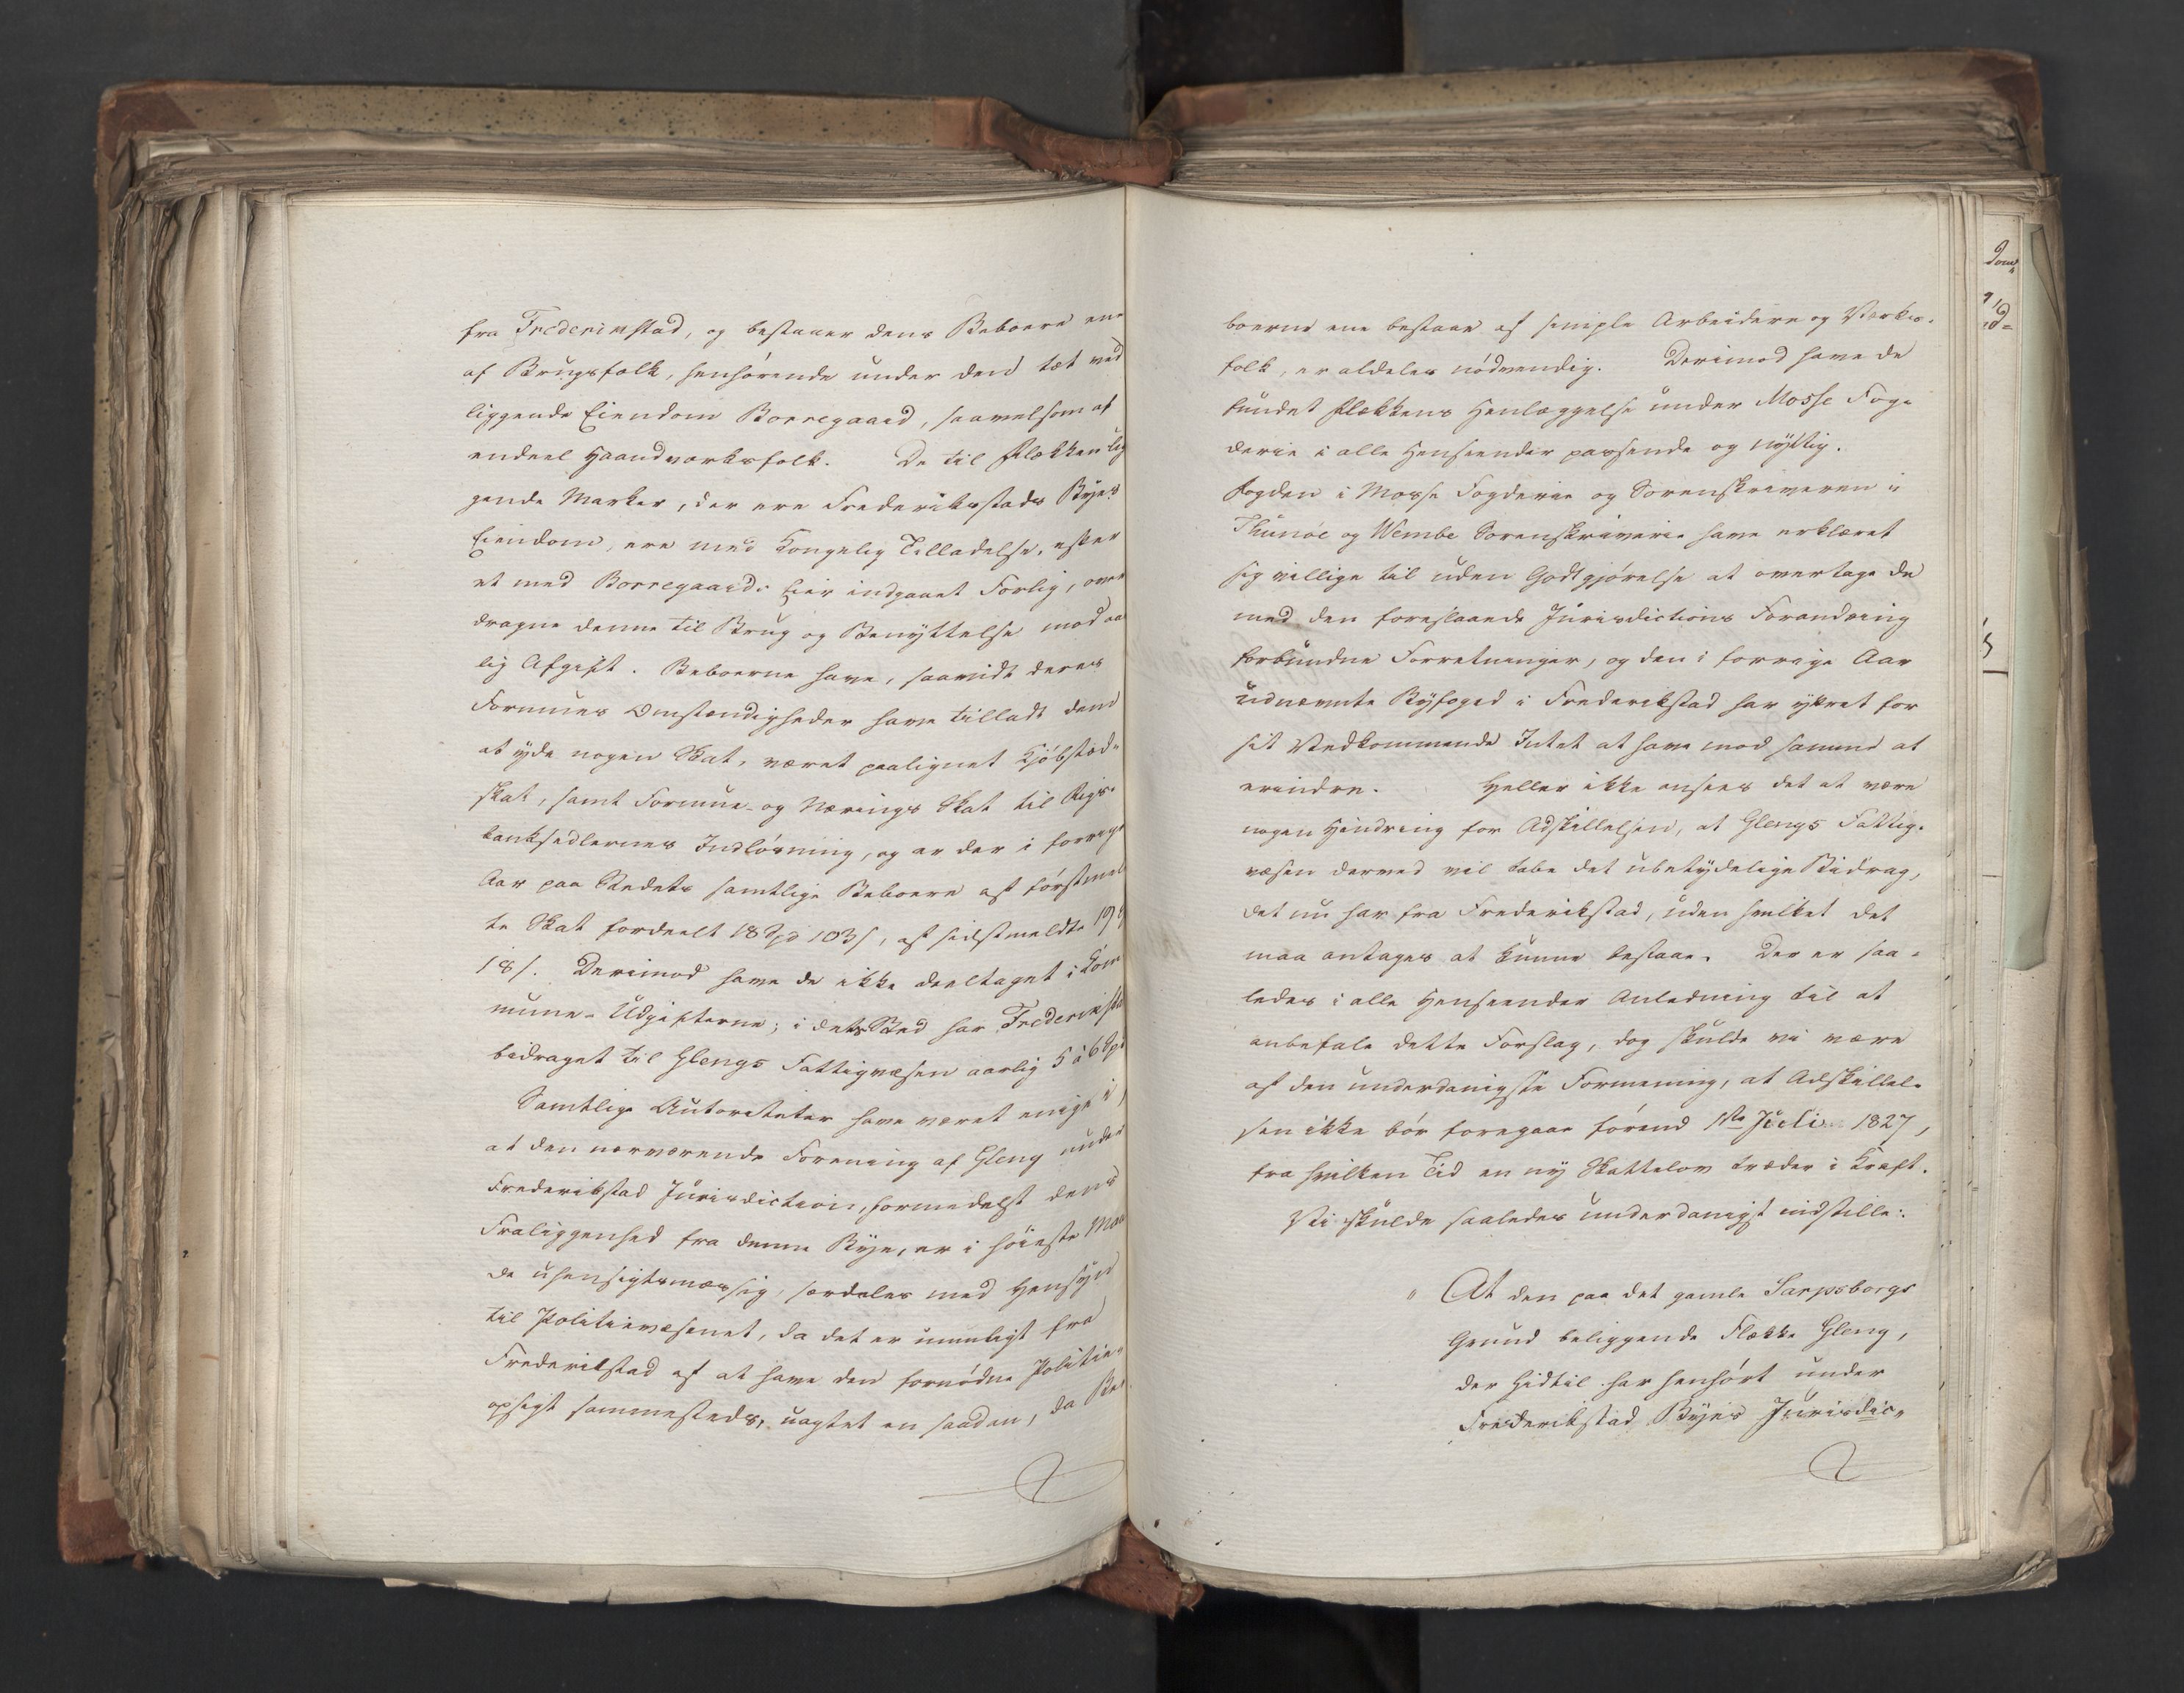 fra Frederikstad, og bestaaer dens Beboere ene
af Brugsfolk, henhörende under den tæt ved
liggende Eiendom Borregaard, saavelsom af
endeel Haandværksfolk. De til Flækken lig
gende Marker, der ere Frederiksstads Byes
Eiendom, ere med Kongelig Tilladelse, efter
et med Borregaards Eier indgaaet Forlig, over
dragne denne til Brug og Benyttelse mod aar
lig Afgift. Beboerne have, saavidt deres
Formues Omstændigheder have tilladt dem
at yde nogen Skat, været paalignet Kjöbstad-
skat, samt Formue- og Nærings Skat til Rigs-
banksedlernes Indlösning, og er der i forrige
Aar paa Stedets samtlige Beboere af förstmeld
te Skat fordeelt 18 Spd 103 s, af sidstmeldte 19
18 s. Derimod have de ikke deeltaget i Com
mune-Udgifterne; i dets Sted har Frederiksta
bidraget til Glengs Fattigvæsen aarlig 5 à 6 Spd
Samtlige Autoriteter have været enige i,
at den nærværende Forening af Gleng under
Frederikstad Jurisdiction, formedelst dens
Fraliggenhed fra denne Bye, er i höieste Maa
de uhensigtsmæssig, særdeles med Hensyn
til Politievæsenet, da det er umuligt fra
Frederikstad af at have den fornödne Politie-
opsigt sammesteds, uagtet en saadan, da Be-
boerne ene bestaae af simple Arbeidere og Værks-
folk, er aldeles nödvendig. Derimod have de
fundet Flækkens Henlæggelse under Mosse Fog-
derie i alle Henseender passende og nyttig.
Fogden i Mosse Fogderie og Sorenskriveren i
Thunöe og Wembe Sorenskriverie have erklæret
sig villige til uden Godtgjörelse at overtage de
med den foreslaaede Jurisdictions Forandring
forbundne Forretninger, og den i forrige Aar
udnævnte Byfoged i Frederikstad har yttret for
sit Vedkommende Intet at have mod samme at
erindre. Heller ikke ansees det at være
nogen Hindring for Adskillelsen, at Glengs Fattig-
væsen derved vil tabe det ubetydelige Bidrag,
det nu har fra Frederikstad, uden hvilket det
maa antages at kunne bestaae. Der er saa-
ledes i alle Henseender Anledning til at
anbefale dette Forslag, dog skulde vi være
af den underdanigste Formening, at Adskillel-
sen ikke bör foregaae förend 1ste Juli 1827,
fra hvilken Tid en ny Skattelov træder i Kraft.
Vi skulde saaledes underdanigst indstille:
" At den paa det gamle Sarpsborgs
Grund beliggende Flække Gleng,
der hidtil har henhört under
Frederikstad Byes Jurisdic-